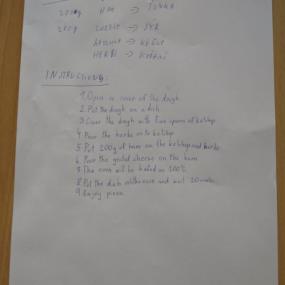 200g HAM → ŠUNKA
250g CHEESE → SYR
KETCHUP → KEČUP
HERBS →
INSTRUCTIONS:
1. Open a cover of the dough
2. Put the dough on a dish
3. Cover the dough with five spoons of ketchup
4. Pour the herbs onto ketchup
5. Put 200g of ham on the ketchup and herbs
6. Pour the grated cheese on the ham
7. The oven will be heated on 200°C
8. Put the dish into the oven and wait 20 minutes
9. Enjoy pizza